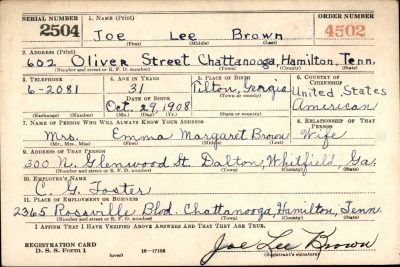 SERIAL NUMBER 1. NAME (Print) ORDER NUMBER
2504 Joe Lee Brown 4502
(First) (Middle) (Last)
2. ADDRESS (Print)
602 Oliver Street Chattanooga, Hamilton, Tenn.
(Number and street or R. F. D. number) (Town) (County) (State)
3. TELEPHONE 4. AGE IN YEARS 5. PLACE OF BIRTH 6. COUNTRY OF CITIZENSHIP
6-2081 31 Georgia United States
DATE OF BIRTH (Town or county)
Oct. 29, 1908 American
(Exchange) (Number) (Mo.) (Day) (Yr.) (State or country)
7. NAME OF PERSON WHO WILL ALWAYS KNOW YOUR ADDRESS 8. RELATIONSHIP OF THAT PERSON
Mrs. Emma Margaret Brown Wife
(Mr., Mrs., Miss) (First) (Middle) (Last)
9. ADDRESS OF THAT PERSON
200 N. Glenwood St. Dalton, Whitfield, Ga.
(Number and street or R. F. D. number) (Town) (County) (State)
10. EMPLOYER'S NAME
C. G. Foster
11. PLACE OF EMPLOYMENT OR BUSINESS
2365 Rossville Blvd. Chattanooga, Hamilton, Tenn.
(Number and street or R. F. D. number) (Town) (County) (State)
I AFFIRM THAT I HAVE VERIFIED ABOVE ANSWERS AND THAT THEY ARE TRUE.
REGISTRATION CARD
D. S. S. Form 1 16—17105 Joe Lee Brown
(Registrant's signature)